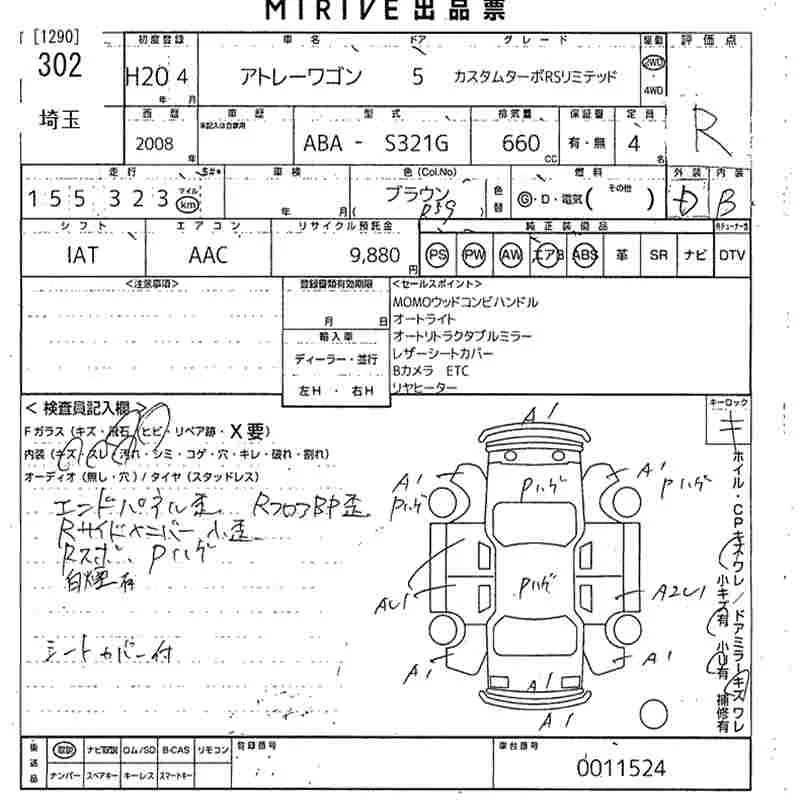 MIRIVE出品票
[1290] 初度登録 車名 ドア グレード 駆動 評価点
302 H20 4 アトレーワゴン 5 カスタムターボRSリミテッド 2WD・4WD R
年 月
埼玉 西暦 車歴 型式 排気量 保証書 定員
2008 年 未記入は自家用 ABA - S321G 660 CC 有・無 4 名
走行 車検 色(Col.No) 燃料 外装 内装
155 323 マイル km 年 月 ブラウン 色替 G・D・電気( その他 ) D B
シフト エアコン リサイクル預託金 純正装備品
IAT AAC 9,880 円 PS PW AW エアB ABS 革 SR ナビ DTV
<注意事項> 登録書類有効期限 <セールスポイント>
月 日
MOMOウッドコンビハンドル
オートライト
輸入車 オートリトラクタブルミラー
ディーラー・並行 レザーシートカバー
Bカメラ ETC
左H・右H リヤヒーター
<検査員記入欄> キーロック
キ
Fガラス(キズ・飛石・ヒビ・リペア跡・X要)
内装(キズ・スレ・汚れ・シミ・コゲ・穴・キレ・破れ・割れ)
オーディオ(無し・穴)/タイヤ(スタッドレス)
エンドパネル歪 RフロアBP歪
Rサイドメンバー小歪
Rスポ、Pハゲ
白煙有
シートカバー付
A1
A1 Pハゲ Pハゲ A1 Pハゲ
Pハゲ
AU1 A2U1
A1 A1 A1
A1
ホイル・CPキズワレ/ドアミラーキズワレ
小キズ有 小U有 補修有
後送品 取説 ナビ取説 ロム/SD B-CAS リモコン 登録番号 車台番号
ナンバー スペアキー キーレス スマートキー 0011524